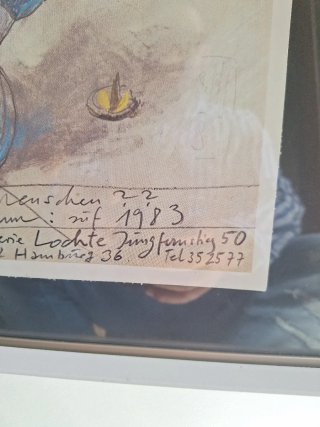 Menschen ??
: 1983
erie Lochte Jungfernstieg 50
2 Hamburg 36 Tel 352577